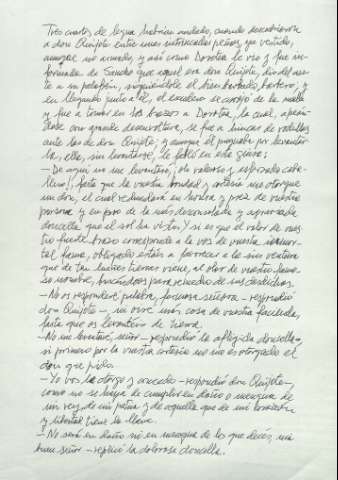 Tres cuartos de legua habrían andado, cuando descubrieron
a don Quijote entre unas intrincadas peñas, ya vestido,
aunque no armado, y así como Dorotea le vio y fue in-
formada de Sancho que aquel era don Quijote, dio del azo-
te a su palafrén, siguiéndole el bien barbado barbero; y
en llegando junto a él, el escudero se arrojó de la mula
y fue a tomar en los brazos a Dorotea, la cual, apeán-
dose con grande desenvoltura, se fue a hincar de rodillas
ante las de don Quijote; y aunque él pugnaba por levantar-
la, ella, sin levantarse, le fabló en esta guisa:
– De aquí no me levantaré, ¡oh valeroso y esforzado caba-
llero!, fasta que la vuestra bondad y cortesía me otorgue
un don, el cual redundará en honra y prez de vuestra
persona y en pro de la más desconsolada y agraviada
doncella que el sol ha visto. Y si es que el valor de vues-
tro fuerte brazo corresponde a la voz de vuestra inmor-
tal fama, obligado estáis a favorecer a la sin ventura
que de tan lueñes tierras viene, al olor de vuestro famo-
so nombre, buscándoos para remedio de sus desdichas.
– No os responderé palabra, fermosa señora – respondió
don Quijote –, ni oiré más cosa de vuestra facienda,
fasta que os levantéis de tierra.
– No me levantaré, señor – respondió la afligida doncella –,
si primero por la vuestra cortesía no me es otorgado el
don que pido.
– Yo vos le otorgo y concedo – respondió don Quijote –,
como no se haya de cumplir en daño o mengua de
mi rey, de mi patria y de aquella que de mi corazón
y libertad tiene la llave.
– No será en daño ni en mengua de los que decís, mi
buen señor – replicó la dolorosa doncella.